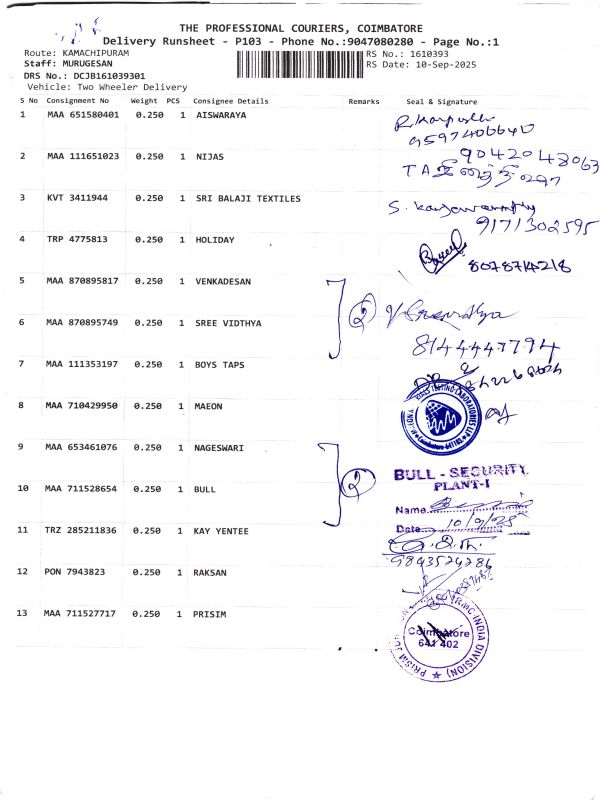 THE PROFESSIONAL COURIERS, COIMBATORE
Delivery Runsheet - P103 - Phone No.:9047080280 - Page No.:1
Route: KAMACHIPURAM RS No.: 1610393
Staff: MURUGESAN RS Date: 10-Sep-2025
DRS No.: DCJB161039301
Vehicle: Two Wheeler Delivery
S No Consignment No Weight PCS Consignee Details Remarks Seal & Signature
1 MAA 651580401 0.250 1 AISWARAYA
2 MAA 111651023 0.250 1 NIJAS 9042048063
3 KVT 3411944 0.250 1 SRI BALAJI TEXTILES 9171302595
4 TRP 4775813 0.250 1 HOLIDAY 8078714218
5 MAA 870895817 0.250 1 VENKADESAN
6 MAA 870895749 0.250 1 SREE VIDTHYA 2
8144447794
7 MAA 111353197 0.250 1 BOYS TAPS
8 MAA 710429950 0.250 1 MAEON
9 MAA 653461076 0.250 1 NAGESWARI
BULL - SECURITY
PLANT-I
10 MAA 711528654 0.250 1 BULL 2
Name
Date 10/9/25
11 TRZ 285211836 0.250 1 KAY YENTEE
9843524286
12 PON 7943823 0.250 1 RAKSAN
13 MAA 711527717 0.250 1 PRISIM
Coimbatore
641 402
INDIA DIVISION)